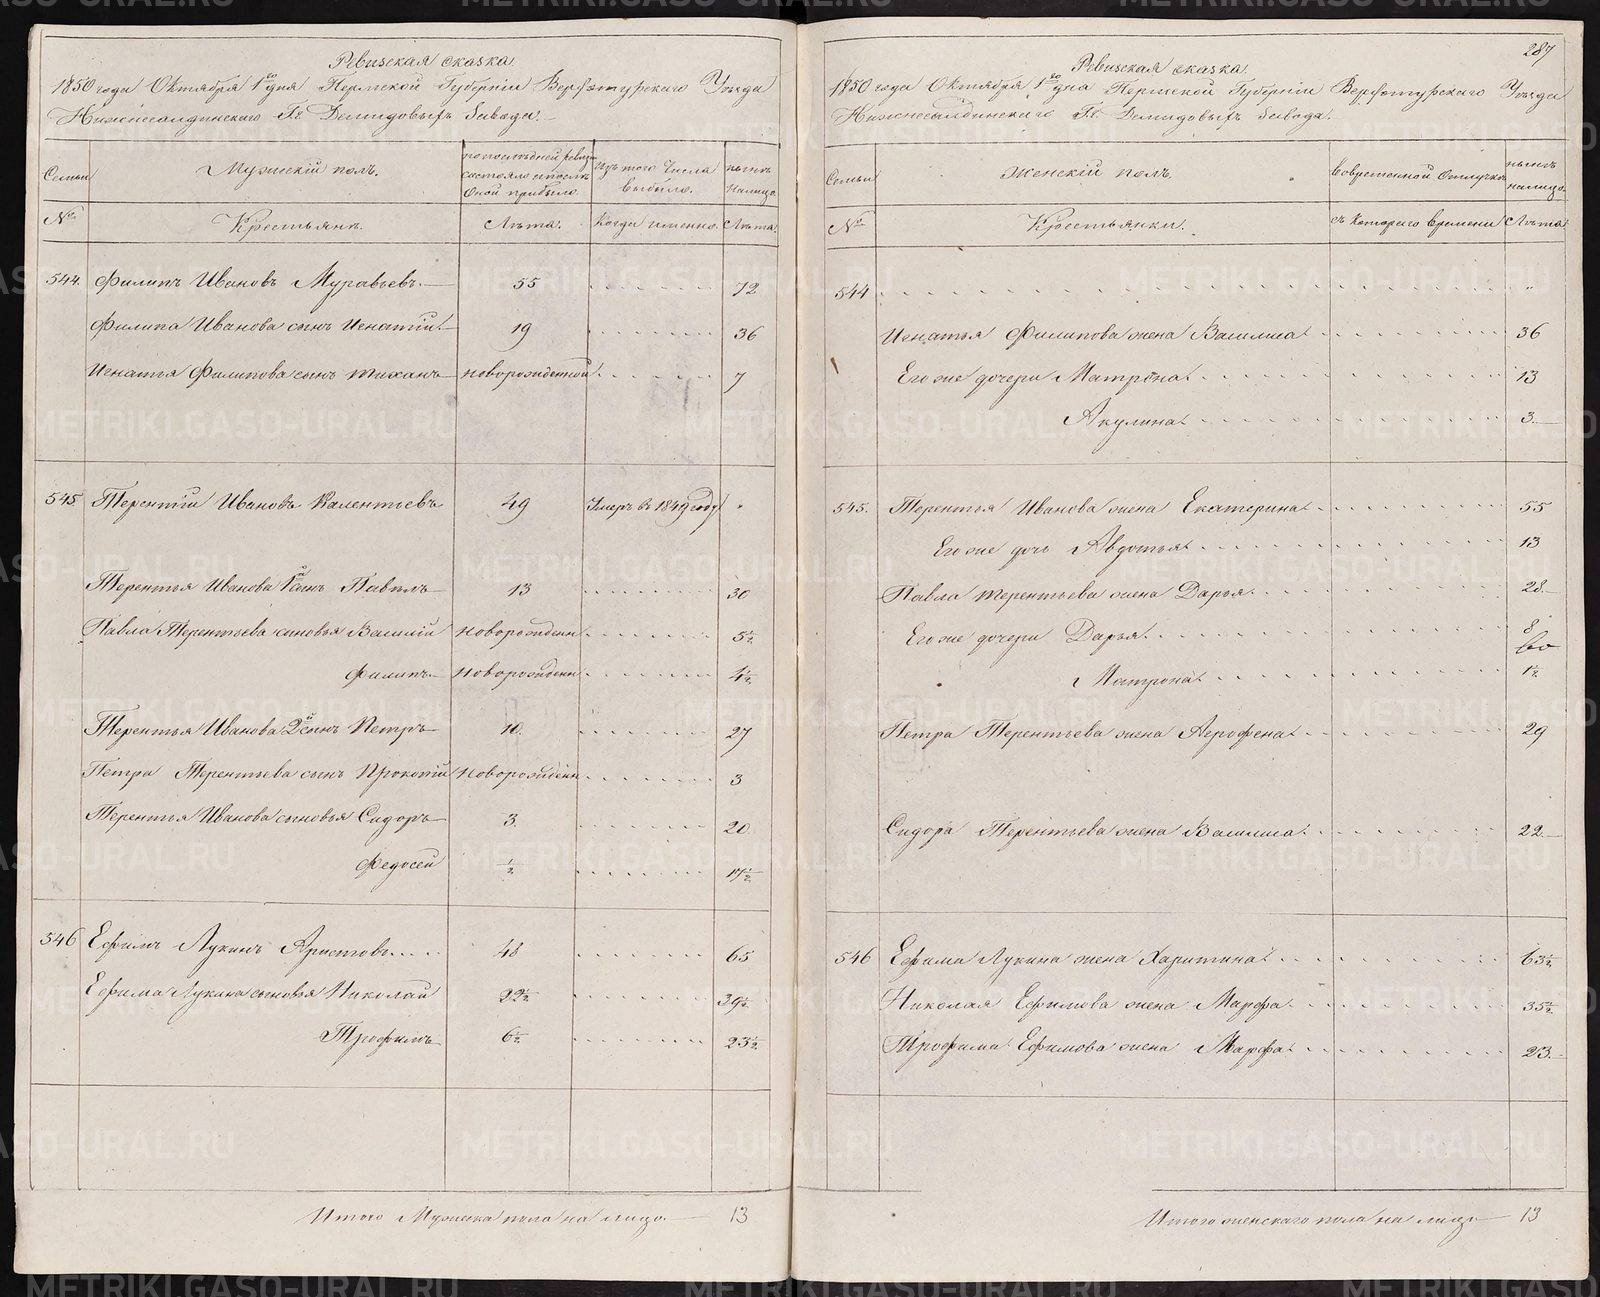 Ревизская сказка.
1850 года Октября 1го дня Пермской Губернiи Верхотурскаго Уѣзда
Нижнесалдинскаго Гг. Демидовыхъ Завода.
Семьи
Мужскiй полъ.
по последней ревизiи состояло и после оной прибыло.
Изъ того числа выбыло.
нынѣ на лицо.
№
Крестьяне.
Лѣта.
Когда именно.
Лѣта.
544. Филипъ Ивановъ Муравьевъ. 55 72
Филипа Иванова сынъ Игнатiй. 19 36
Игнатья Филипова сынъ Тиханъ новорожденной 7
545 Терентiй Ивановъ Валентьевъ 49 Умеръ в 1849 году "
Терентья Иванова 1й сынъ Павелъ 13 30
Павла Терентьева сыновья Василiй новорожден 5½
Филипъ новорожден 4½
Терентья Иванова 2й сынъ Петръ 10. 27
Петра Терентьева сынъ Прокопiй новорожден 3
Терентья Иванова сыновья Сидоръ 3. 20
Федосей ½ 17½
546 Ефимъ Лукинъ Аристовъ 48 65
Ефима Лукина сыновья Николай 22½ 39½
Трофимъ 6½ 23½
Итого Мужска пола на лицо 13
287
Ревизская сказка.
1850 года Октября 1го дна Пермской Губернiи Верхотурскаго Уѣзда
Нижнесалдинскаго Гг. Демидовыхъ Завода.
Семьи
Женскiй полъ.
Во временной отлучке
нынѣ на лицо.
№
Крестьянки.
съ котораго времени
Лѣта
544 "
Игнатья Филипова жена Василиса 36
Его же дочери Матрёна 13
Акулина 3.
545. Терентья Иванова жена Екатерина 55
Его же дочь Авдотья 13
Павла Терентьева жена Дарья 28.
Его же дочери Дарья 8
Матрона 1½
Петра Терентьева жена Агрофена 29
Сидора Терентьева жена Василиса 22.
546 Ефима Лукина жена Харитина 63½
Николая Ефимова жена Марфа 35½
Трофима Ефимова жена Марфа 23.
Итого женскаго пола на лицо 13
METRIKI.GASO-URAL.RU